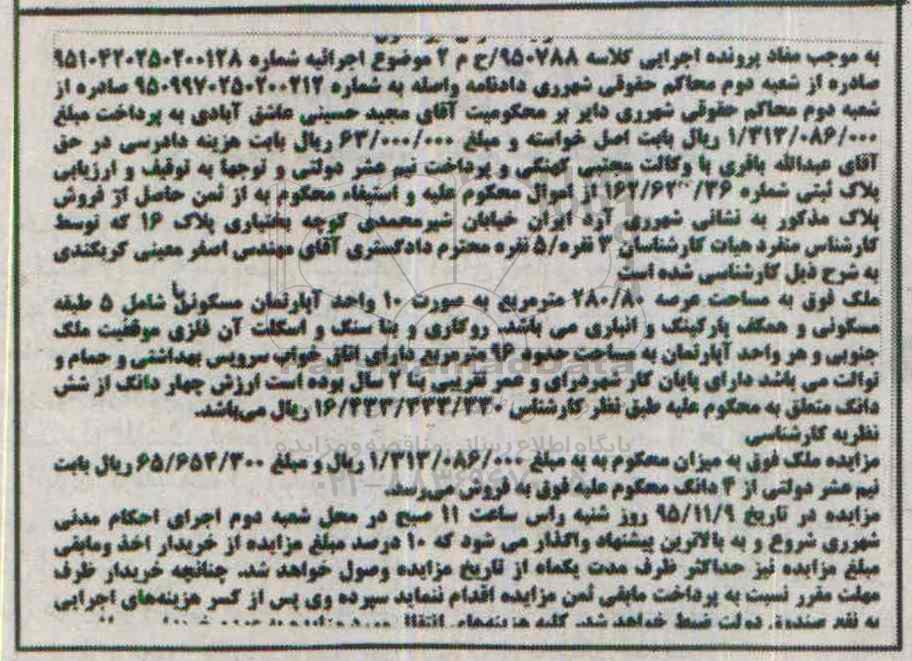 به موجب مفاد پرونده اجرایی کلاسه ۹۵۰۷۸۸/ح م ۲ موضوع اجرائیه شماره ۹۵۱۰۴۲۰۲۵۰۲۰۰۱۲۸
صادره از شعبه دوم محاکم حقوقی شهرری دادنامه واصله به شماره ۹۵۰۹۹۷۰۲۵۰۲۰۰۲۱۲ صادره از
شعبه دوم محاکم حقوقی شهرری دایر بر محکومیت آقای مجید حسینی عاشق آبادی به پرداخت مبلغ
۱/۳۱۳/۰۸۶/۰۰۰ ریال بابت اصل خواسته و مبلغ ۶۳/۰۰۰/۰۰۰ ریال بابت هزینه دادرسی در حق
آقای عبدالله باقری با وکالت مجتبی کهنکی و پرداخت نیم عشر دولتی و توجها به توقیف و ارزیابی
پلاک ثبتی شماره از اموال محکوم علیه و استیفاء محکوم به از ثمن حاصل از فروش
پلاک مذکور به نشانی شهرری آره ایران خیابان شیرمحمدی کوچه بختیاری پلاک ۱۶ که توسط
کارشناس منفرد هیات کارشناسان ۳ نفره/۵ نفره محترم دادگستری آقای مهندس اصغر معینی کربکندی
به شرح ذیل کارشناسی شده است
ملک فوق به مساحت عرصه ۲۸۰/۸۰ مترمربع به صورت ۱۰ واحد آپارتمان مسکونی شامل ۵ طبقه
مسکونی و همکف پارکینگ و انباری می باشد. روکاری و بنا سنگ و اسکلت آن فلزی موقعیت ملک
جنوبی و هر واحد آپارتمان به مساحت حدود ۹۶ مترمربع دارای اتاق خواب سرویس بهداشتی و حمام و
توالت می باشد دارای پایان کار شهرداری و عمر تقریبی بنا ۲ سال بوده است ارزش چهار دانگ از شش
دانگ متعلق به محکوم علیه طبق نظر کارشناس ۱۶/۴۳۳/۳۳۳/۳۳۰ ریال می‌باشد.
نظریه کارشناسی
مزایده ملک فوق به میزان محکوم به به مبلغ ۱/۳۱۳/۰۸۶/۰۰۰ ریال و مبلغ ۶۵/۶۵۴/۳۰۰ ریال بابت
نیم عشر دولتی از ۴ دانگ محکوم علیه فوق به فروش می‌رسد.
مزایده در تاریخ ۹۵/۱۱/۹ روز شنبه راس ساعت ۱۱ صبح در محل شعبه دوم اجرای احکام مدنی
شهرری شروع و به بالاترین پیشنهاد واگذار می شود که ۱۰ درصد مبلغ مزایده از خریدار اخذ ومابقی
مبلغ مزایده نیز حداکثر ظرف مدت یکماه از تاریخ مزایده وصول خواهد شد. چنانچه خریدار ظرف
مهلت مقرر نسبت به پرداخت مابقی ثمن مزایده اقدام ننماید سپرده وی پس از کسر هزینه‌های اجرایی
به نفع صندوق دولت ضبط خواهد شد. کلیه هزینه‌های انتقال